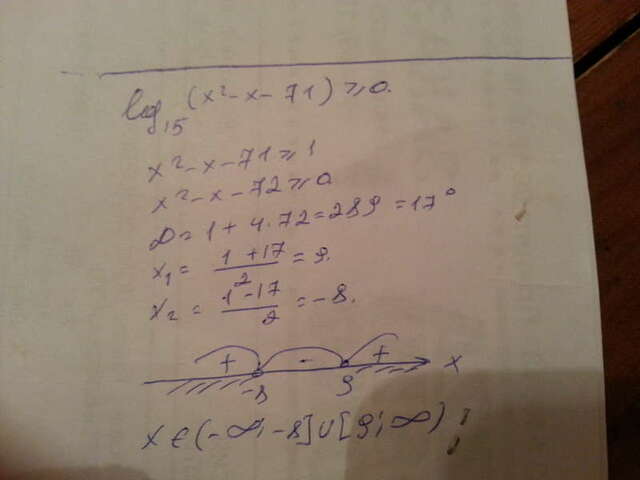 log₁₅(x²-x-71)≥0.
x²-x-71≥1
x²-x-72≥0
D=1+4.72=289=17²
x₁ = (1+17)/2 = 9.
x₂ = (1-17)/2 = -8.
+ - + x
-8 9
x∈(-∞;-8]∪[9;∞);